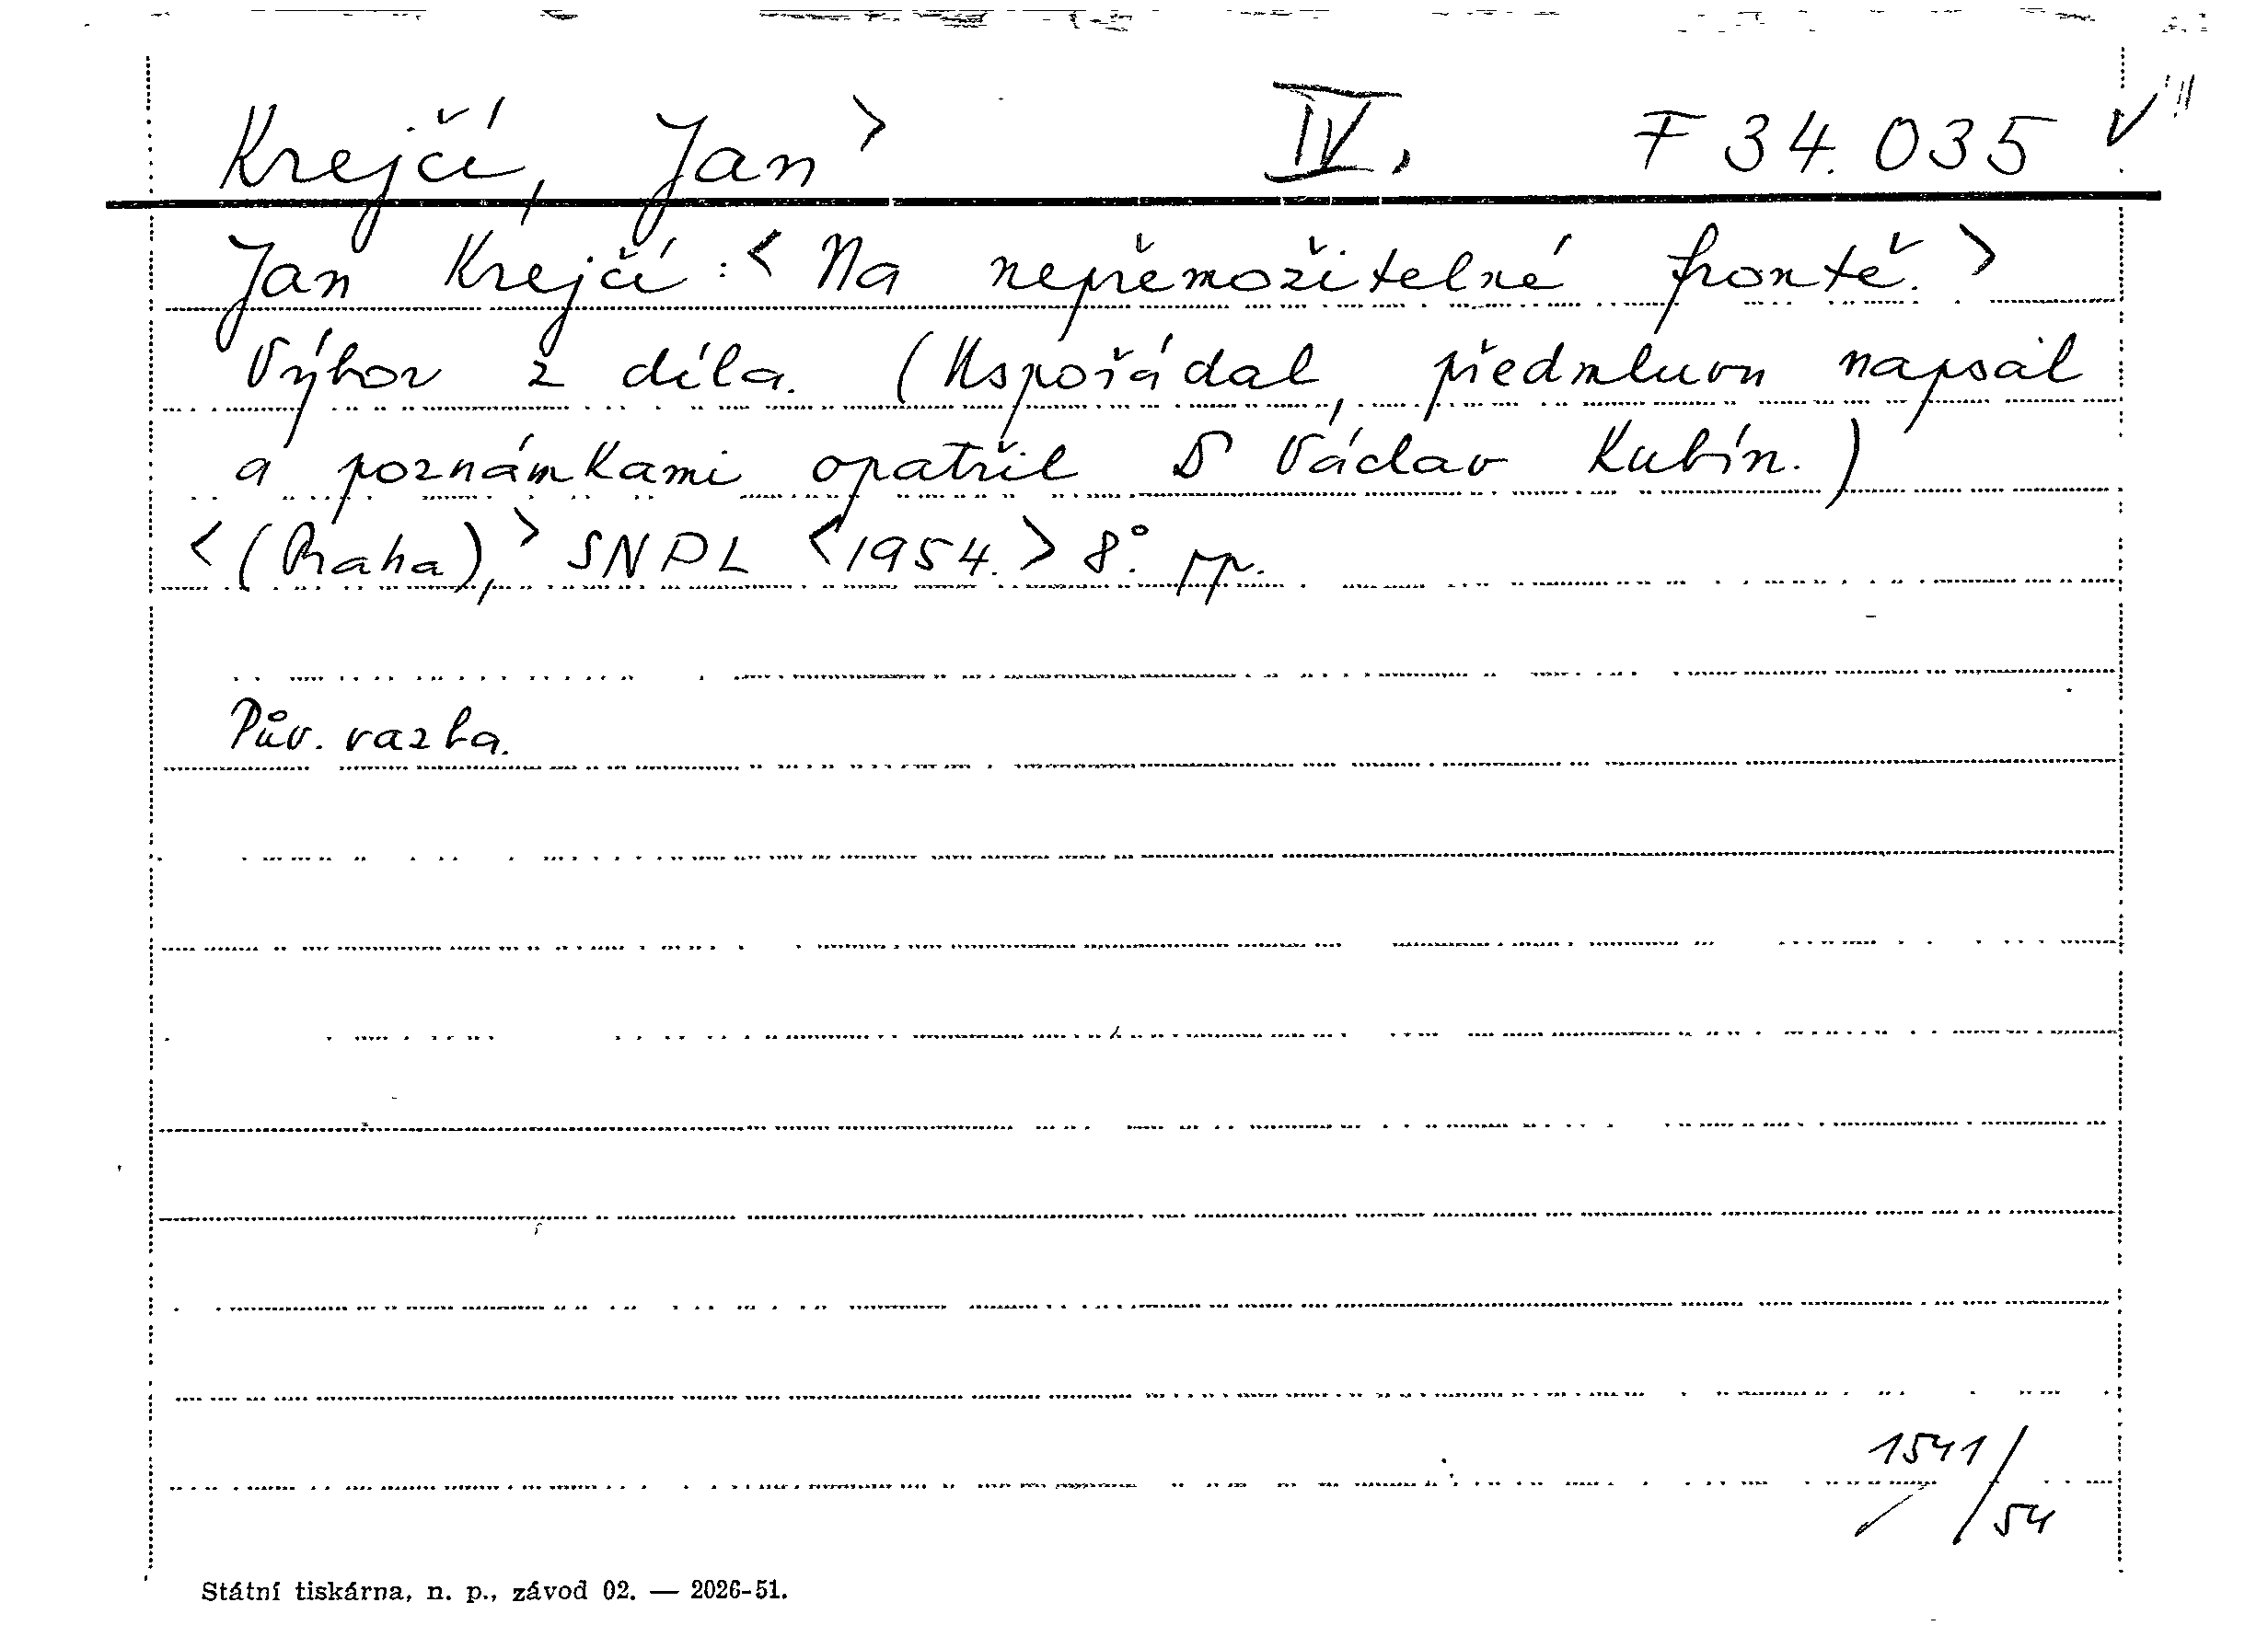 Krejčí, Jan > IV. F 34.035 V
Jan Krejčí: < Na nepřemožitelné frontě. >
Výbor z díla. (Uspořádal, předmluvu napsal
a poznámkami opatřil Václav Kubín.)
< (Praha), > SNPL < 1954. > 8°. pp.
Pův. vazba.
1541/54
Státní tiskárna, n. p., závod 02. — 2026-51.